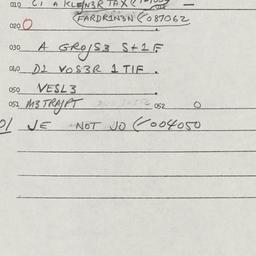 010
(FARDR1N3N (/087062
020 O
030 A GROJS3 S+1F
040 D1 VOS3R 1 TIF.
050 VESL3
051 M3TRAJPT 052 O
01 JE NOT JO (/004050